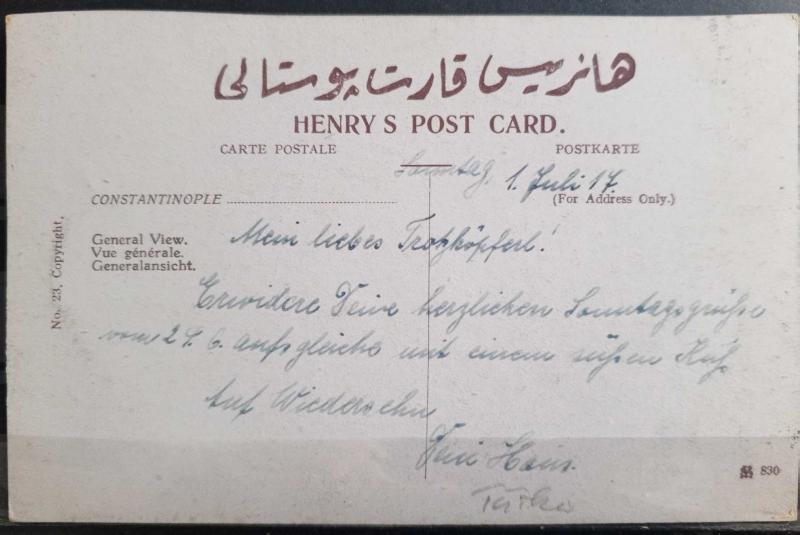 هانریس قارت پوستالی
HENRY S POST CARD.
CARTE POSTALE POSTKARTE
Sonntag, 1. Juli 17.
CONSTANTINOPLE
(For Address Only.)
General View.
Vue générale.
Generalansicht.
No. 23, Copyright.
Mein liebes Trotzköpferl!
Erwidere Deine herzlichen Sonntagsgrüße
vom 24.6. aufs gleiche mit einem süßen Kuß.
Auf Wiedersehn
Dein Hans.
830